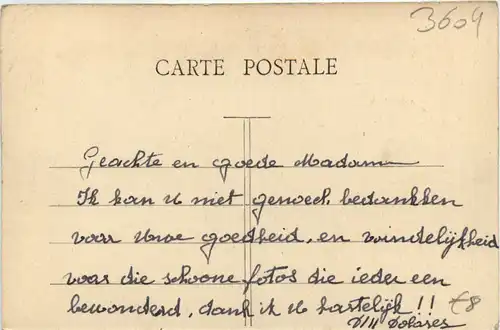 3604
CARTE POSTALE
Geachte en goede Madam
Ik kan U niet genoech bedankken
voor Uwe goedheid, en vrindelijkheid
voor die schoone fotos die ieder een
bewonderd, dank ik U hartelijk !! €8